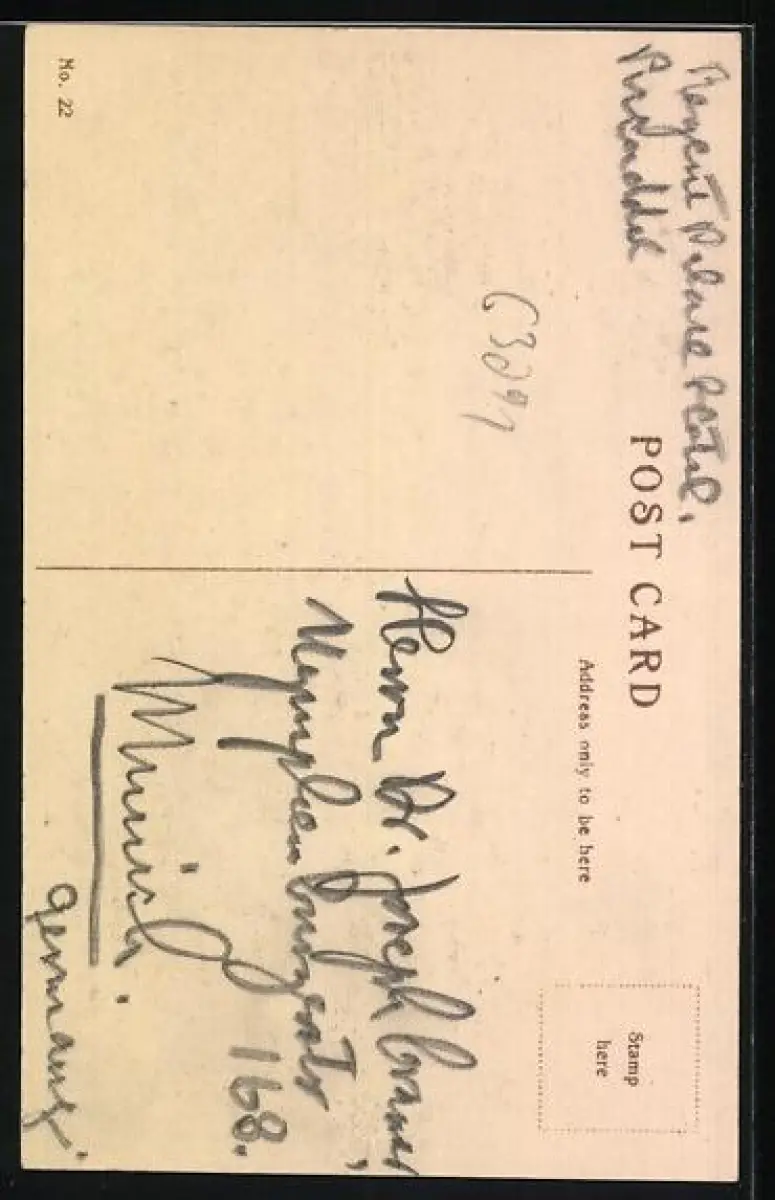 Regent Palace Hotel.
Piccadilly
POST CARD
Address only to be here
Stamp
here
Herrn Dr. Joseph Cramer,
Nymphenburgerstr
168.
Munich.
Germany
No. 22